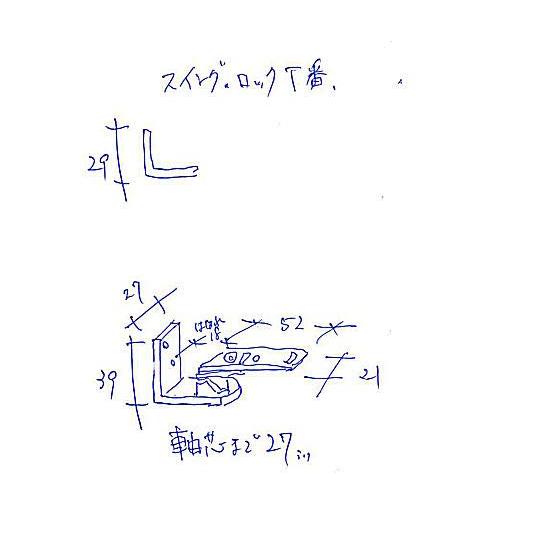 スイング.ロック丁番.
29
27
18
52
39
21
軸芯まで27